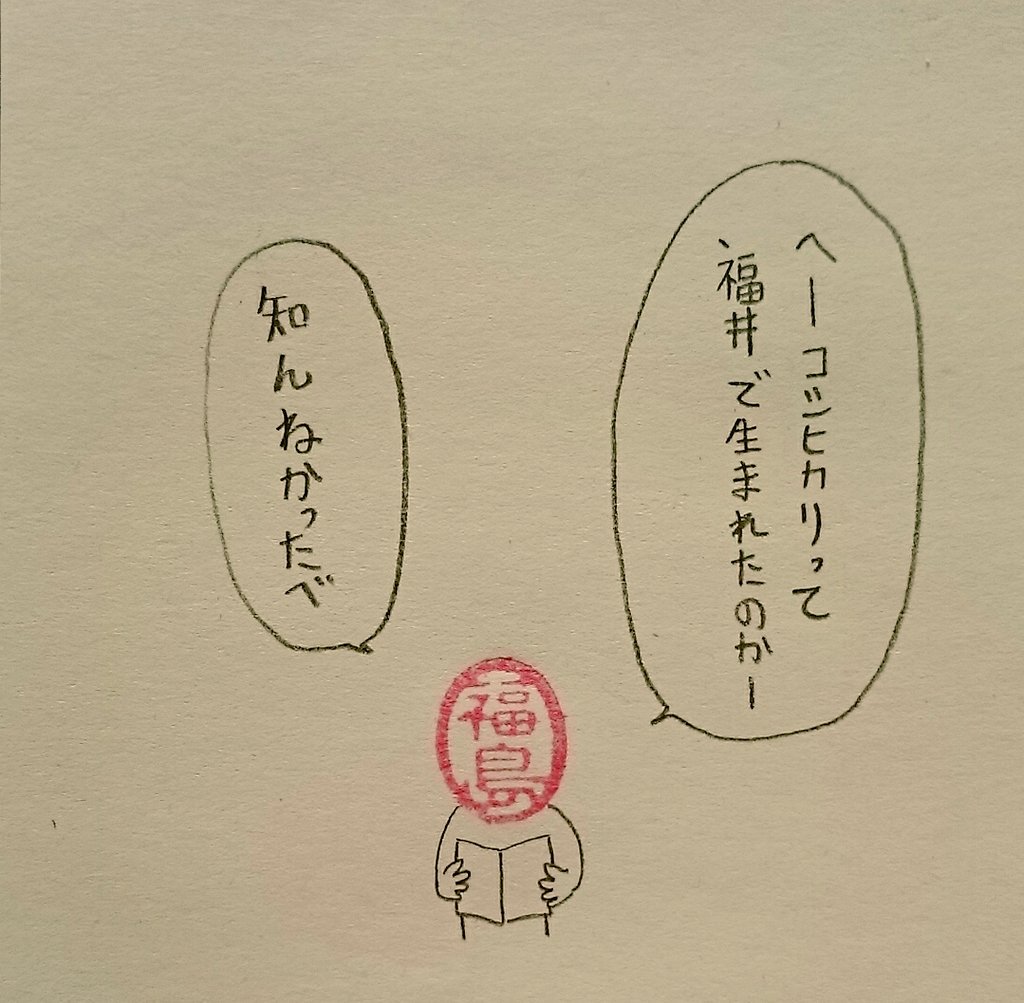 へーコシヒカリって
福井で生まれたのかー
知んねかったべ
福島